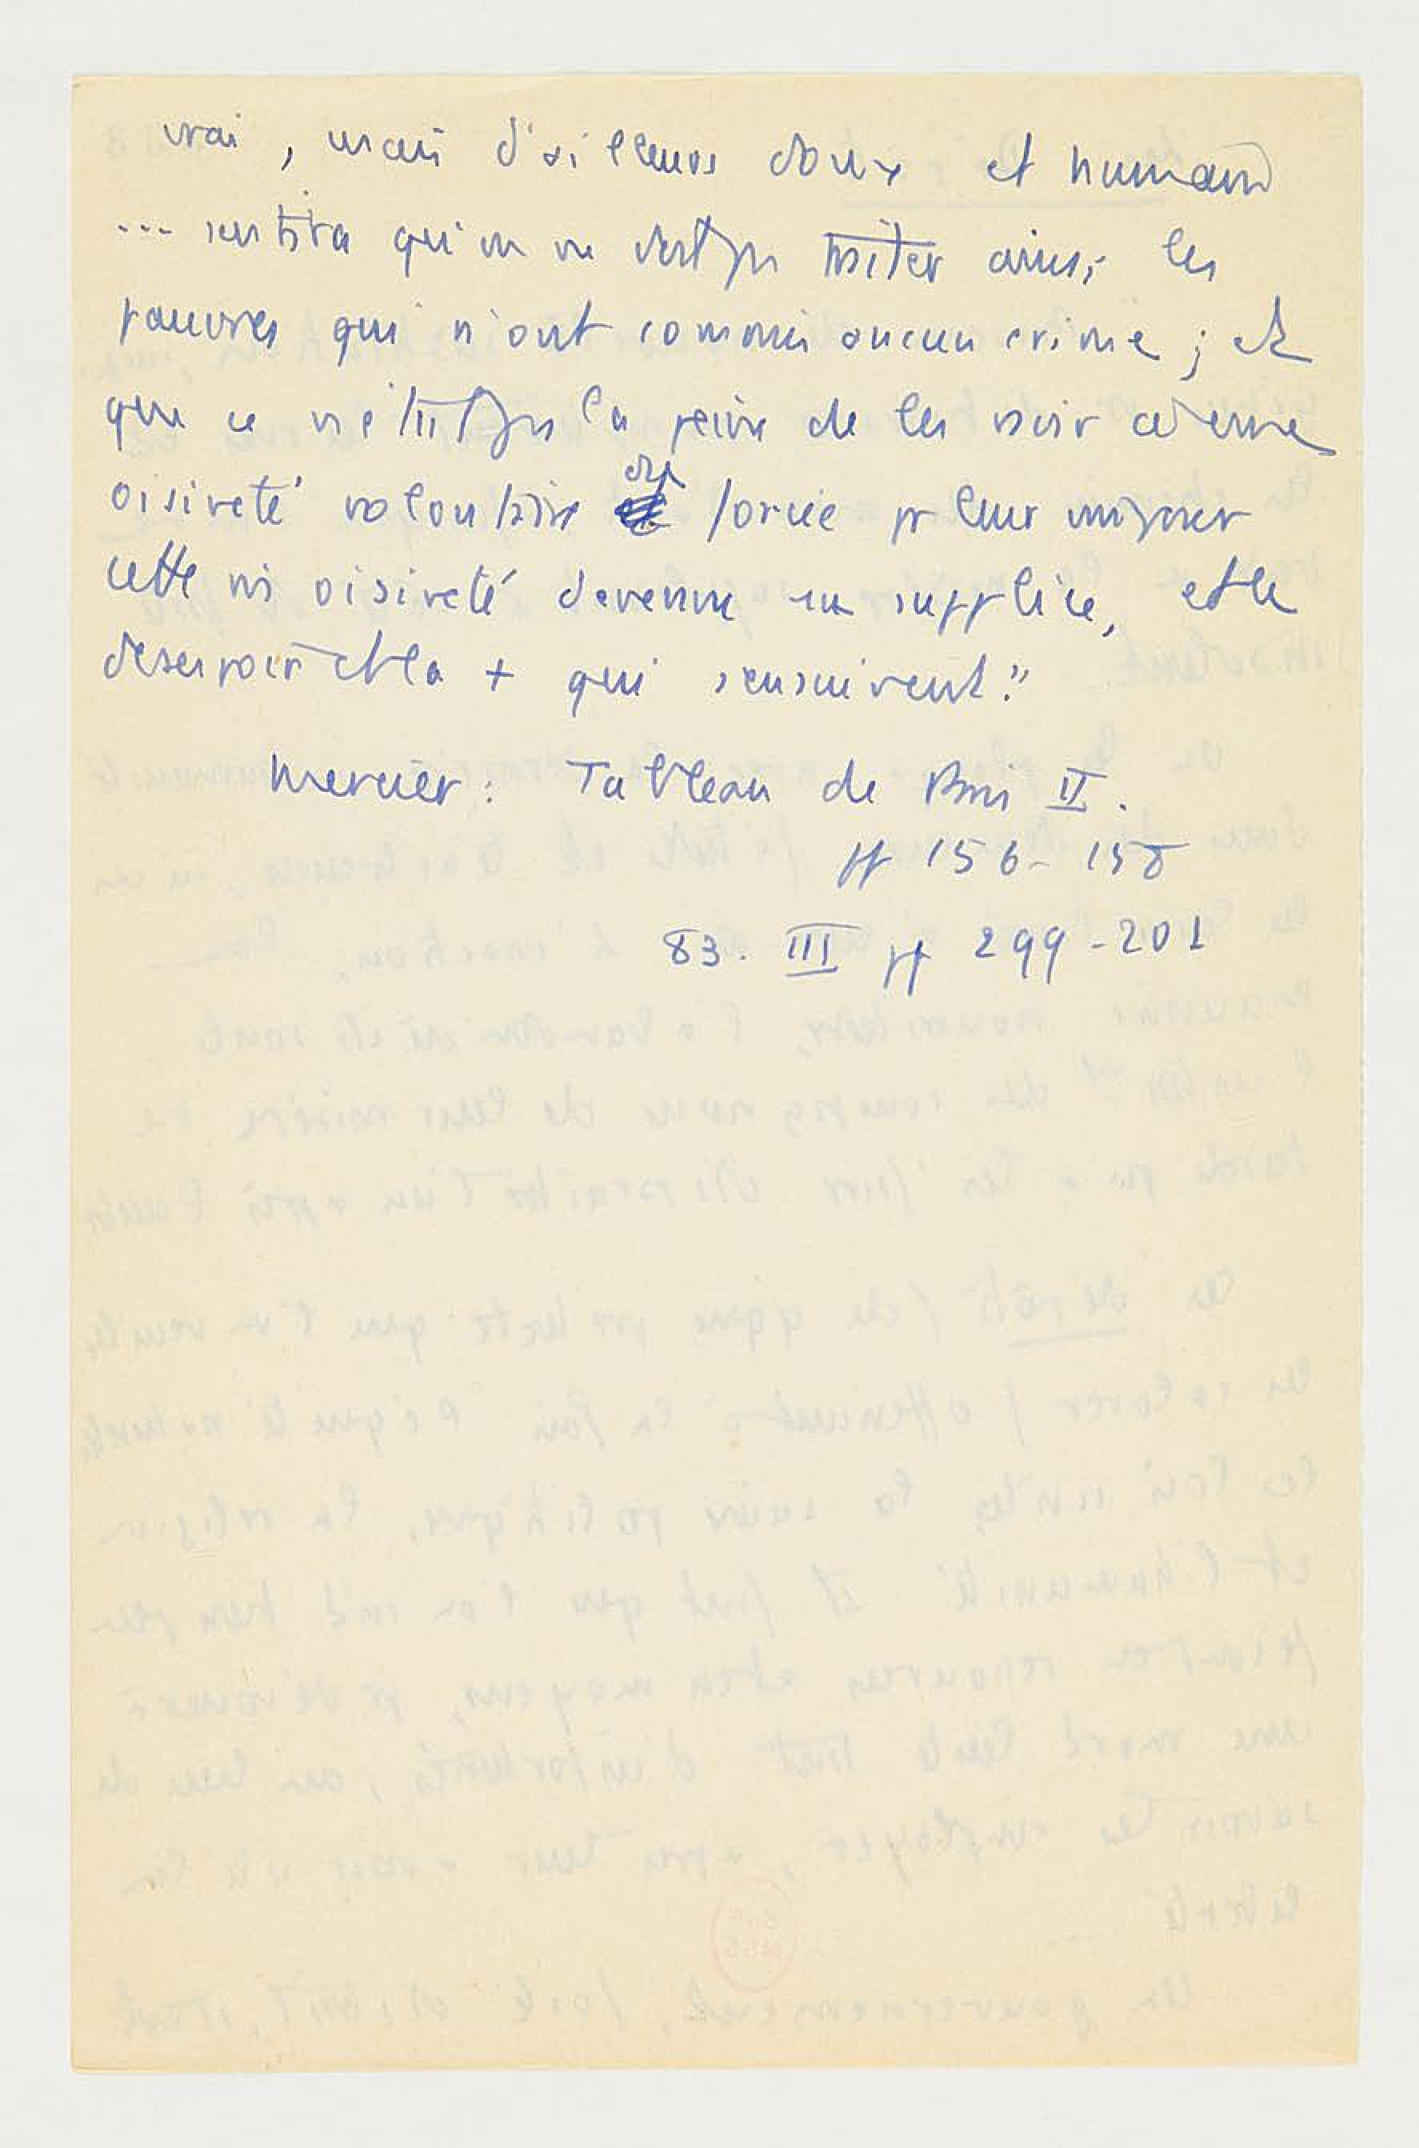 vrai, mais d'ailleurs doux et humain
... sentira qu'on ne doit pas traiter ainsi les
pauvres qui n'ont commis aucun crime ; et
que ce n'était pas la peine de les voir
oisiveté volontaire forcée pr leur imposer
cette oisiveté devenue un supplice, et le
desespoir et la + qui s'ensuivent."
Mercier : Tableau de Paris II.
pp 156-158
83. III pp 299-201